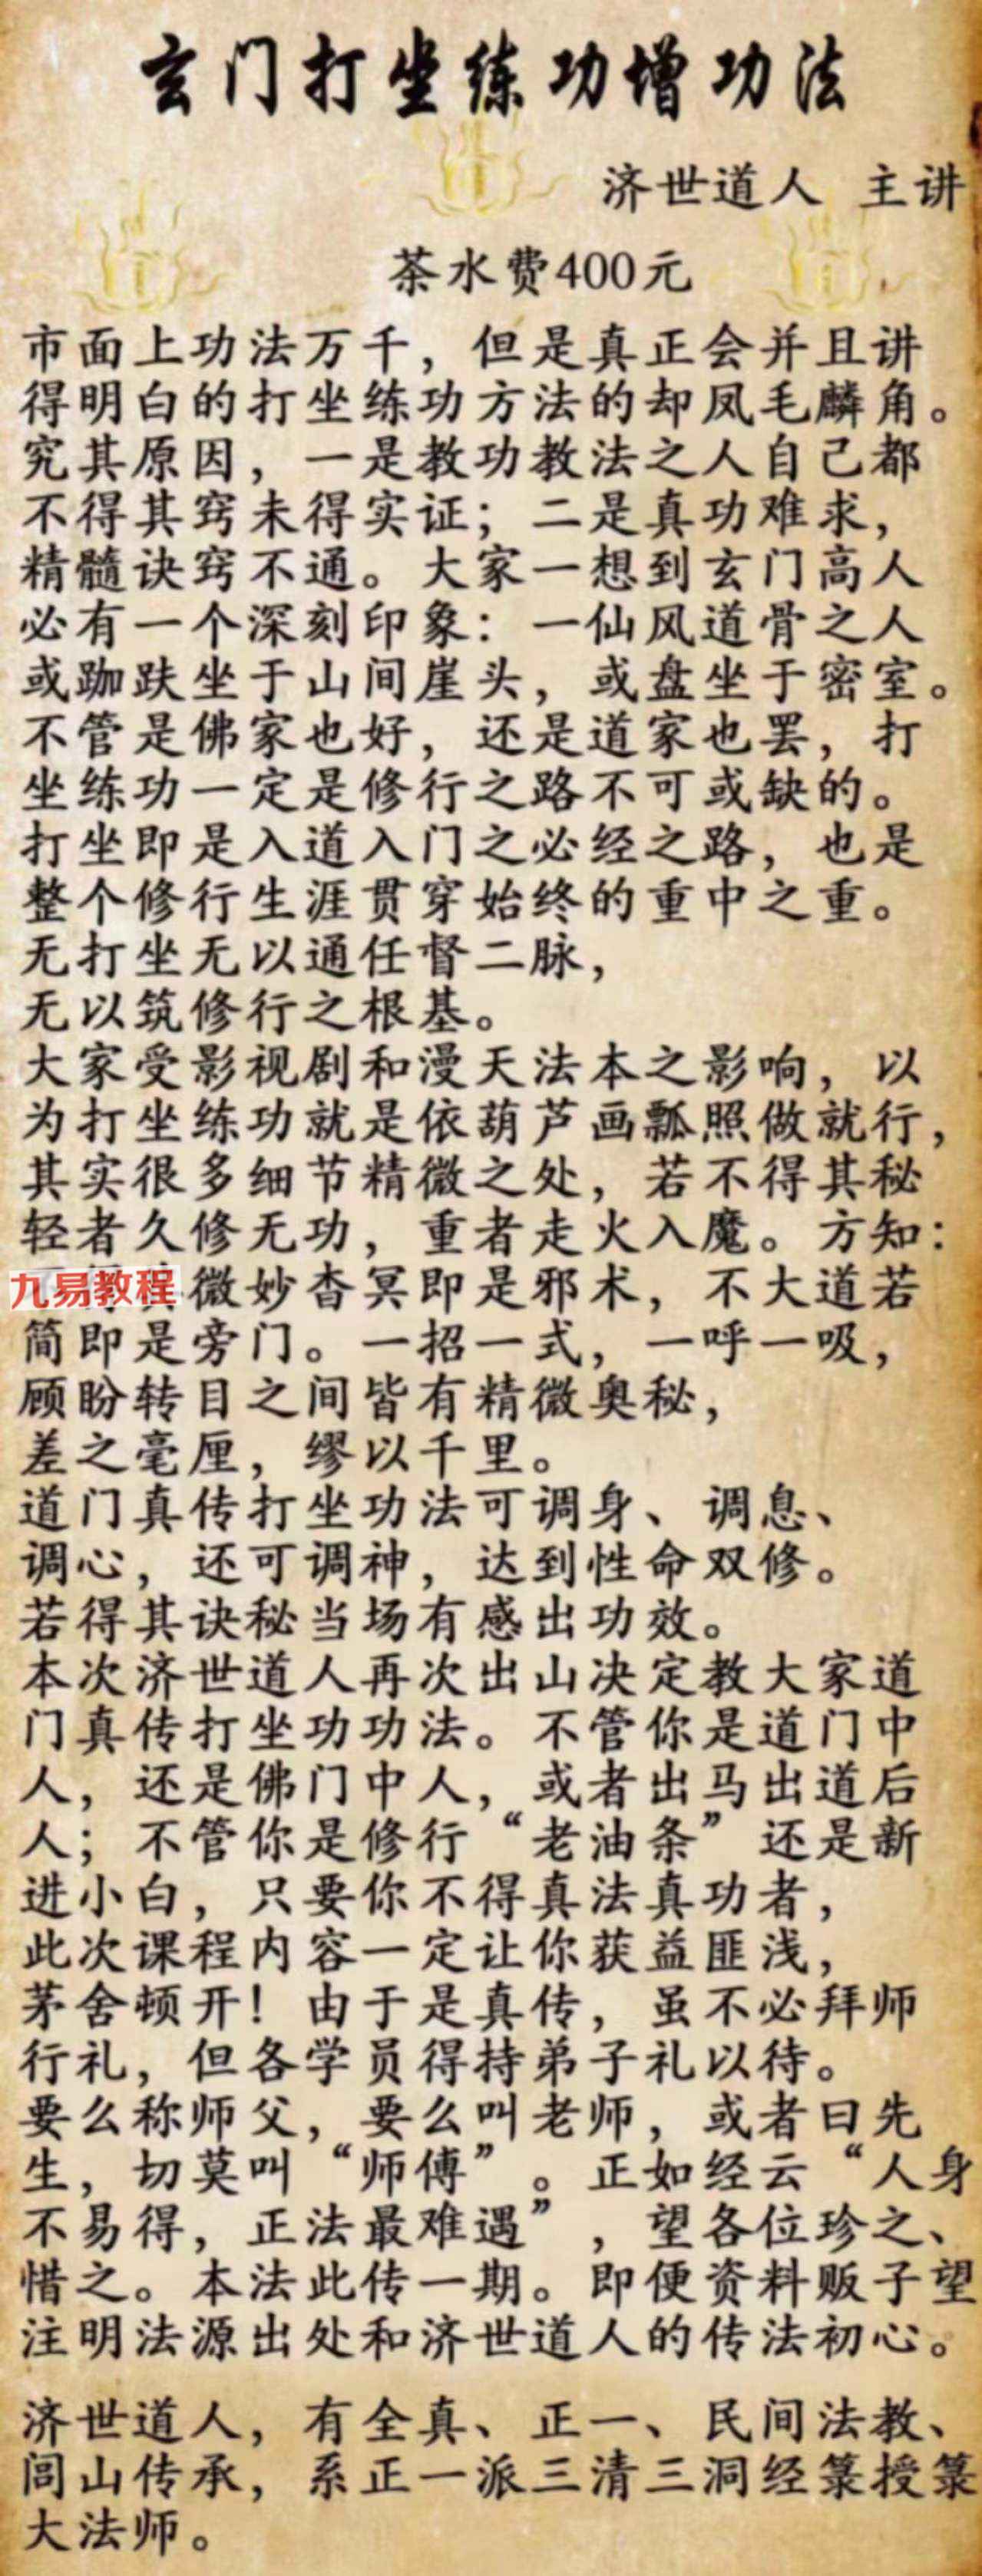 玄门打坐练功增功法
济世道人 主讲
茶水费400元
市面上功法万千，但是真正会并且讲
得明白的打坐练功方法的却凤毛麟角。
究其原因，一是教功教法之人自己都
不得其窍未得实证；二是真功难求，
精髓诀窍不通。大家一想到玄门高人
必有一个深刻印象：一仙风道骨之人
或跏趺坐于山间崖头，或盘坐于密室。
不管是佛家也好，还是道家也罢，打
坐练功一定是修行之路不可或缺的。
打坐即是入道入门之必经之路，也是
整个修行生涯贯穿始终的重中之重。
无打坐无以通任督二脉，
无以筑修行之根基。
大家受影视剧和漫天法本之影响，以
为打坐练功就是依葫芦画瓢照做就行，
其实很多细节精微之处，若不得其秘
轻者久修无功，重者走火入魔。方知：
九易教程
微妙杳冥即是邪术，不大道若
简即是旁门。一招一式，一呼一吸，
顾盼转目之间皆有精微奥秘，
差之毫厘，缪以千里。
道门真传打坐功法可调身、调息、
调心，还可调神，达到性命双修。
若得其诀秘当场有感出功效。
本次济世道人再次出山决定教大家道
门真传打坐功功法。不管你是道门中
人，还是佛门中人，或者出马出道后
人；不管你是修行“老油条”还是新
进小白，只要你不得真法真功者，
此次课程内容一定让你获益匪浅，
茅舍顿开！由于是真传，虽不必拜师
行礼，但各学员得持弟子礼以待。
要么称师父，要么叫老师，或者曰先
生，切莫叫“师傅”。正如经云“人身
不易得，正法最难遇”，望各位珍之、
惜之。本法此传一期。即便资料贩子望
注明法源出处和济世道人的传法初心。
济世道人，有全真、正一、民间法教、
闾山传承，系正一派三清三洞经箓授箓
大法师。